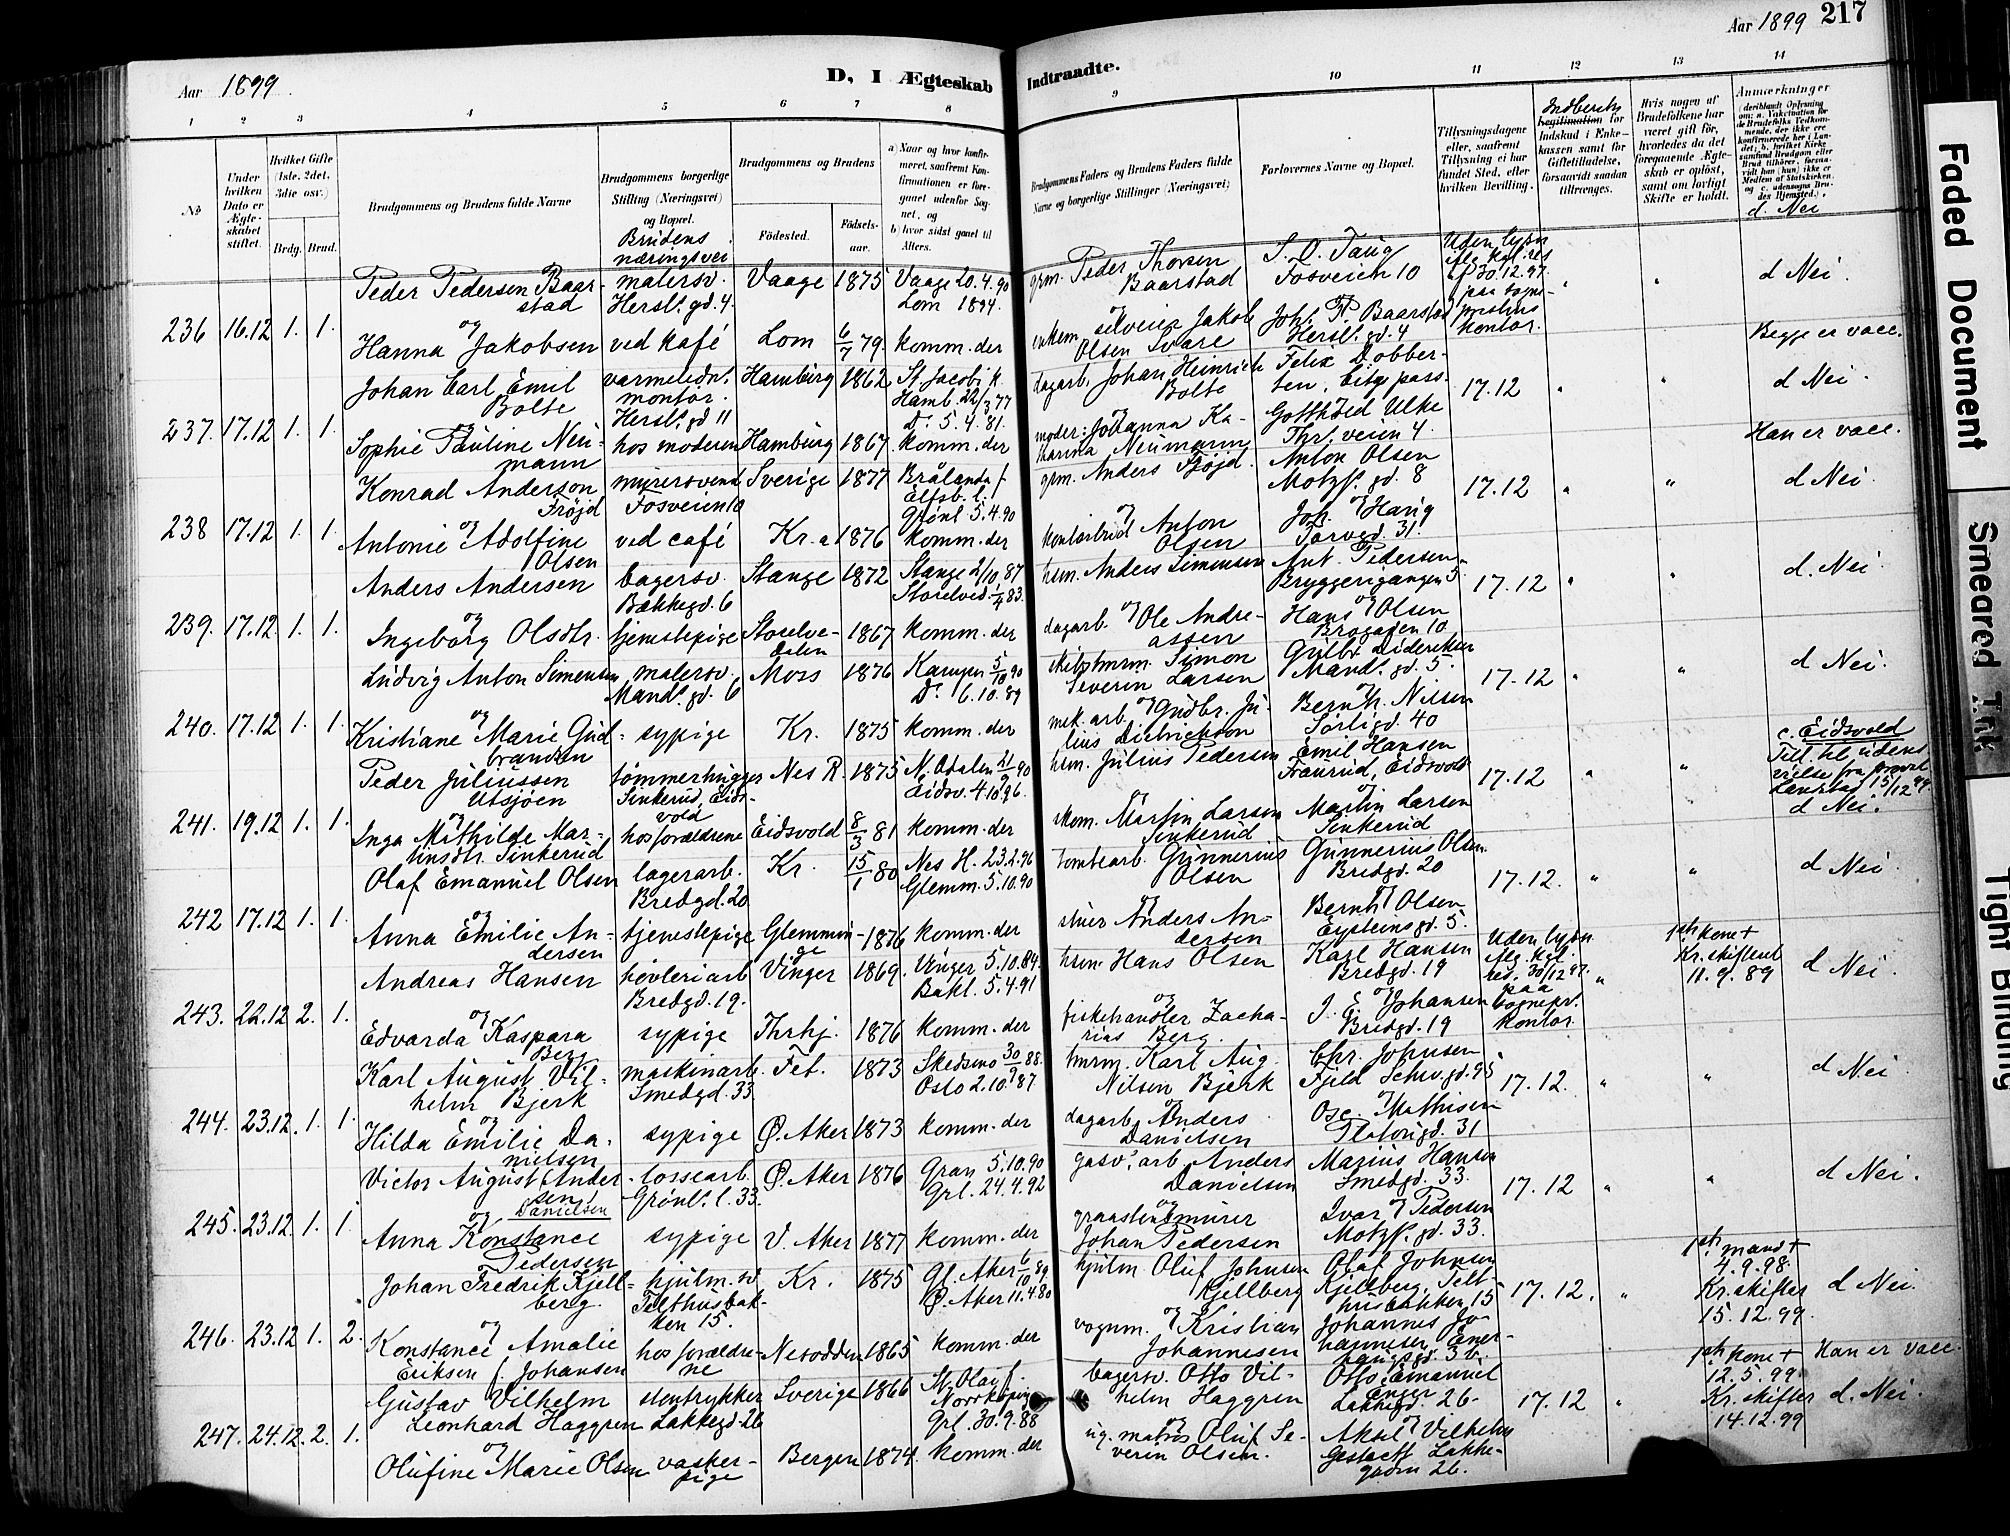 Aar 1899.
D, I Ægteskab
Indtraadte.
Aar 1899 217
1 2 3 4 5 6 7 8 9 10 11 12 13 14
No
Under hvilken Dato er Ægteskabet stiftet.
Hvilket Gifte (1ste. 2det. 3die osv.)
Brdg. Brud.
Brudgommens og Brudens fulde Navne
Brudgommens borgerlige Stilling (Næringsvei) og Bopæl.
Brudens næringsvei
Brudgommens og Brudens
Fødested. Fødselsaar.
a) Naar og hvor konfirmeret, saafremt Konfirmationen er foregaaet udenfor Sognet, og
b) hvor sidst gaaet til Alters.
Brudgommens Faders og Brudens Faders fulde Navne og borgerlige Stillinger (Næringsvei)
Forlovernes Navne og Bopæl.
Tillysningsdagene eller, saafremt Tillysning ei har fundet Sted, efter hvilken Bevilling.
Indberetn.
Legitimation for Indskud i Enkekassen samt for Giftetilladelse, forsaavidt saadan tiltrænges.
Hvis nogen af Brudefolkene har været gift før, hvorledes da det foregaaende Ægteskab er opløst, samt om lovligt Skifte er holdt.
Anmærkninger
(deriblandt Oplysning om: a. Vakcination for de Brudefolks Vedkommende, der ikke ere konfirmerede her i Landet; b. hvilket Kirkesamfund Brudgom eller Brud tilhører, forsaavidt han (hun) ikke er Medlem af Statskirken, og c. udensogns Brudes Hjemsted).
d. Nei
236 16.12 1. 1.
Peder Pedersen Baarstad
malersv. Hersl. gd. 4.
Vaage 1875
Vaage 20.4.90
Lom 1894.
grm. Peder Thorsen Baarstad
S. O. Taug
Fosveien 10
Uden lysn. iflg. kgl. res. af 30.12.97. paa sogneprestens kontor.
" "
d Nei.
og
Hanna Jakobsen
ved kafé
Lom 6/7 79.
komm. der
enkem. Jakob Olsen Svare
Joh. P. Baarstad
Hersl. gd. 4
Begge er vacc.
237. 17.12 1. 1.
Johan Carl Emil Bolte
varmeledn. montør. Hersl. gd 11
Hamburg 1862
St. Jacobi k. Hamb. 22/3 77
Do. 5.4.81.
dagarb. Johan Heinrich Bolte
Felix Dobberten, Eitgs pass.
17.12 " "
d Nei.
og
Sophie Pauline Neumann
hos moderen
Hamburg 1867
komm. der
moder: Johanna Katharina Neumann
Gotthold Ulke
Thrl. veien 4.
Han er vacc.
238 17.12 1. 1.
Konrad Anderson Fröjd
murersvend Fosveien 10
Sverige 1877
Brålanda f. Elfsb. l.
Grønl. 5.4.90
grm. Anders Fröjd.
Anton Olsen
Motzf. gd. 8
17.12 " "
d Nei.
og
Antonie Adolfine Olsen
ved café
Kr.a 1876
komm. der
kontorbud Anton Olsen
Joh. Haug
Torvgd. 31.
239. 17.12. 1. 1.
Anders Andersen
bagersv. Bækkegd. 6
Stange 1872
Stange 2/10 87
Storelvd. 1/4 83.
hsm. Anders Simensen
Ant. Pedersen
Bryggerigangen 5
17.12 " "
d. Nei.
og
Ingeborg Olsdtr.
tjenestepige
Storelvedalen 1867
komm. der
dagarb. Ole Andreassen
Hans Olsen
Brogaden 10
240. 17.12 1. 1.
Ludvig Anton Simensen
malersv. Mand. gd. 6
Moss 1876
Kampen 5/10 90
Do. 6.10.89
skibstmrm. Simon Severin Larsen
Gulbr. Didriksen
Mands. gd. 5.
17.12 " "
d Nei.
og
Kristiane Marie Gudbrandsen
sypige
Kr. 1875
komm. der
mek. arb. Gudbr. Julius Didrickson
Bernh. Nilsen
Sørligd. 40
241. 19.12 1. 1.
Peder Juliussen Utsjøen
tømmerhugger Sinkerud, Eidsvold
Nes R. 1875
N. Odalen 21/9 90
Eidsv. 4.10.96.
hsm. Julius Pedersen
Emil Hansen
Fraurud, Eidsvold
17.12 " "
c. Eidsvold
Till. til udens vielse fra provst 15/12 99.
d Nei.
og
Inga Mathilde Martinsdtr. Sinkerud
hos forældrene
Eidsvold 8/3 81
komm. der
skom. Martin Larsen Sinkerud
Martin Larsen
Sinkerud
242 17.12 1. 1.
Olaf Emanuel Olsen
lagerarb. Bredgd. 20
Kr. 15/1 80
Nes H. 23.2.96
Glemm. 5.10.90
tomtearb. Gunnerius Olsen
Gunnerius Olsen
Bredgd. 20
17.12. " "
d Nei.
og
Anna Emilie Andersen
tjenestepige
Glemminge 1876
komm. der
stuer Anders Andersen
Bernh. Olsen
Eysteinsgd. 5.
243. 22.12 2. 1.
Andreas Hansen
høvleriarb. Bredgd. 19.
Vinger 1869.
Vinger 5.10.84.
Bakl. 5.4.91
hsm. Hans Olsen
Karl Hansen
Bredgd. 19
Uden lysn. iflg. kgl. res. 30/12 97. paa sognepr. kontor
"
1ste kone +
Kr. skiftent 11.9.89
d Nei.
og
Edvarda Kaspara Berg
sypige
Thrhj. 1876
komm. der
fiskehandler Zacharias Berg.
J. E. Johansen
Bredgd. 19
244. 23.12. 1. 1.
Karl August Vilhelm Bjerk
maskinarb. Smedgd. 33
Fet. 1873
Skedsmo 30/9 88.
Oslo 2.10.87
tmrm. Karl Aug. Nilsen Bjerk
Chr. Johnsen
Fjeld Schw. gd. 93
17.12. " "
d Nei.
og
Hilda Emilie Danielsen
sypige
Ø. Aker 1873
komm. der
dagarb. Anders Danielsen
Osc. Mathisen
Platougd. 31
245. 23.12. 1. 1.
Victor August Andersen Danielsen
lossearb. Grønl. l. 33.
Ø. Aker 1876
Gran 5.10.90
Grl. 24.4.92
gasv. arb. Anders Danielsen
Marius Hansen
Smedgd. 33.
17.12 " "
d Nei.
og
Anna Konstance Pedersen
sypige
V. Aker 1877
komm. der
graastensmurer Johan Pedersen
Ivar Pedersen
Motzf. gd. 33.
246. 23.12 1. 2.
Johan Fredrik Kjellberg.
hjulm. sv. Telthusbakken 15.
Kr. 1875
Gl. Aker 6/10 89
Ø. Aker 11.4.80
hjulm. Oluf Johnsen Kjellberg
Olaf Johnsen Kjellberg, Telthusbakken 15
17.12. "
1ste mand +
4.9.98.
Kr. skifter
15.12.99.
d Nei.
og
Konstance Amalie Eriksen f. Johansen
hos forældrene
Nesodden 1865
komm. der
vognm. Kristian Johannesen
Johannes Johannesen Enerhaugsgd. 3 b.
247. 24.12. 2. 1.
Gustav Vilhelm Leonhard Haggren
stentrykker Lakkegd. 26
Sverige 1866
St. Olai f. Norrköping
Grl. 30.9.88
bagersv. Otto Vilhelm Haggren
Otto Emanuel
Lakkegd. 26.
17.12 "
1ste kone +
12.5.99.
Kr. skifter
14.12.99
Han er vacc.
d. Nei.
og
Olufine Marie Olsen
vaskerpige
Bergen 1874.
komm. der
ug. matros Oluf Severin Olsen.
Aksel Vilhelm Lakkegaden 26.
Faded Document
Smeared Ink
Tight Binding